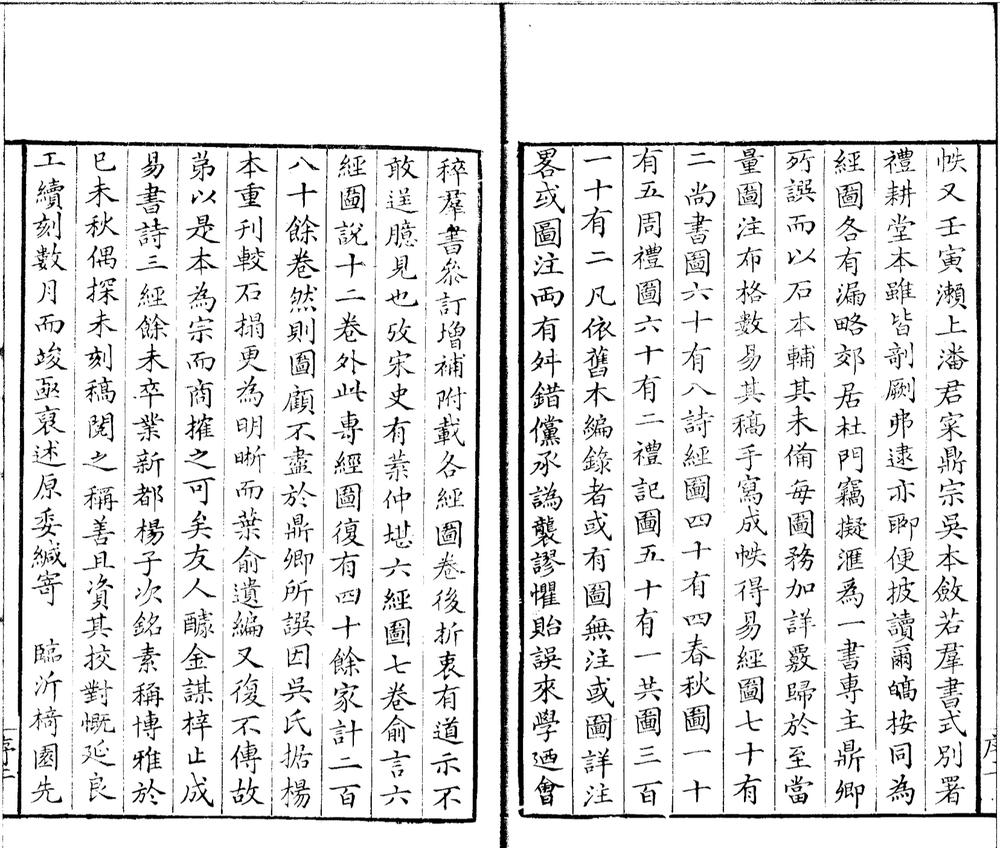 帙又壬寅瀨上潘君寀鼎宗吳本斂若羣書式別署
禮耕堂本雖皆剞劂弗逮亦聊便披讀爾皜按同為
經圖各有漏略郊居杜門竊擬滙爲一書專主鼎卿
所譔而以石本輔其未偹每圖務加詳覈歸於至當
量圖注布格數易其稿手寫成帙得易經圖七十有
二尚書圖六十有八詩經圖四十有四春秋圖一十
有五周禮圖六十有二禮記圖五十有一共圖三百
一十有二凡依舊本編錄者或有圖無注或圖詳注
畧或圖注両有舛錯儻承譌襲謬懼貽誤來學廼會
稡羣書叅訂增補附載各經圖卷後折衷有道示不
敢逞臆見也攷宋史有葉仲堪六經圖七卷俞言六
經圖說十二卷外此專經圖復有四十餘家計二百
八十餘卷然則圖顧不盡於鼎卿所譔因吳氏据楊
本重刊較石搨更為明晣而葉俞遺編又復不傳故
弟以是本為宗而商搉之可矣友人醵金謀梓止成
易書詩三經餘未卒業新都楊子次銘素稱博雅於
巳未秋偶探未刻稿閱之稱善且資其挍對慨延良
工續刻數月而竣亟裒述原委緘寄　臨沂椅園先
序二